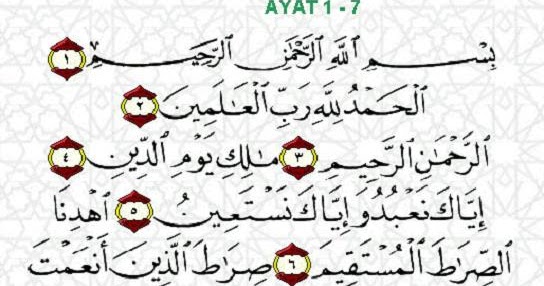 AYAT 1 - 7
بِسْمِ ٱللَّهِ ٱلرَّحْمَٰنِ ٱلرَّحِيمِ ١
ٱلْحَمْدُ لِلَّهِ رَبِّ ٱلْعَٰلَمِينَ ٢
ٱلرَّحْمَٰنِ ٱلرَّحِيمِ ٣ مَٰلِكِ يَوْمِ ٱلدِّينِ ٤
إِيَّاكَ نَعْبُدُ وَإِيَّاكَ نَسْتَعِينُ ٥ ٱهْدِنَا
ٱلصِّرَٰطَ ٱلْمُسْتَقِيمَ ٦ صِرَٰطَ ٱلَّذِينَ أَنْعَمْتَ